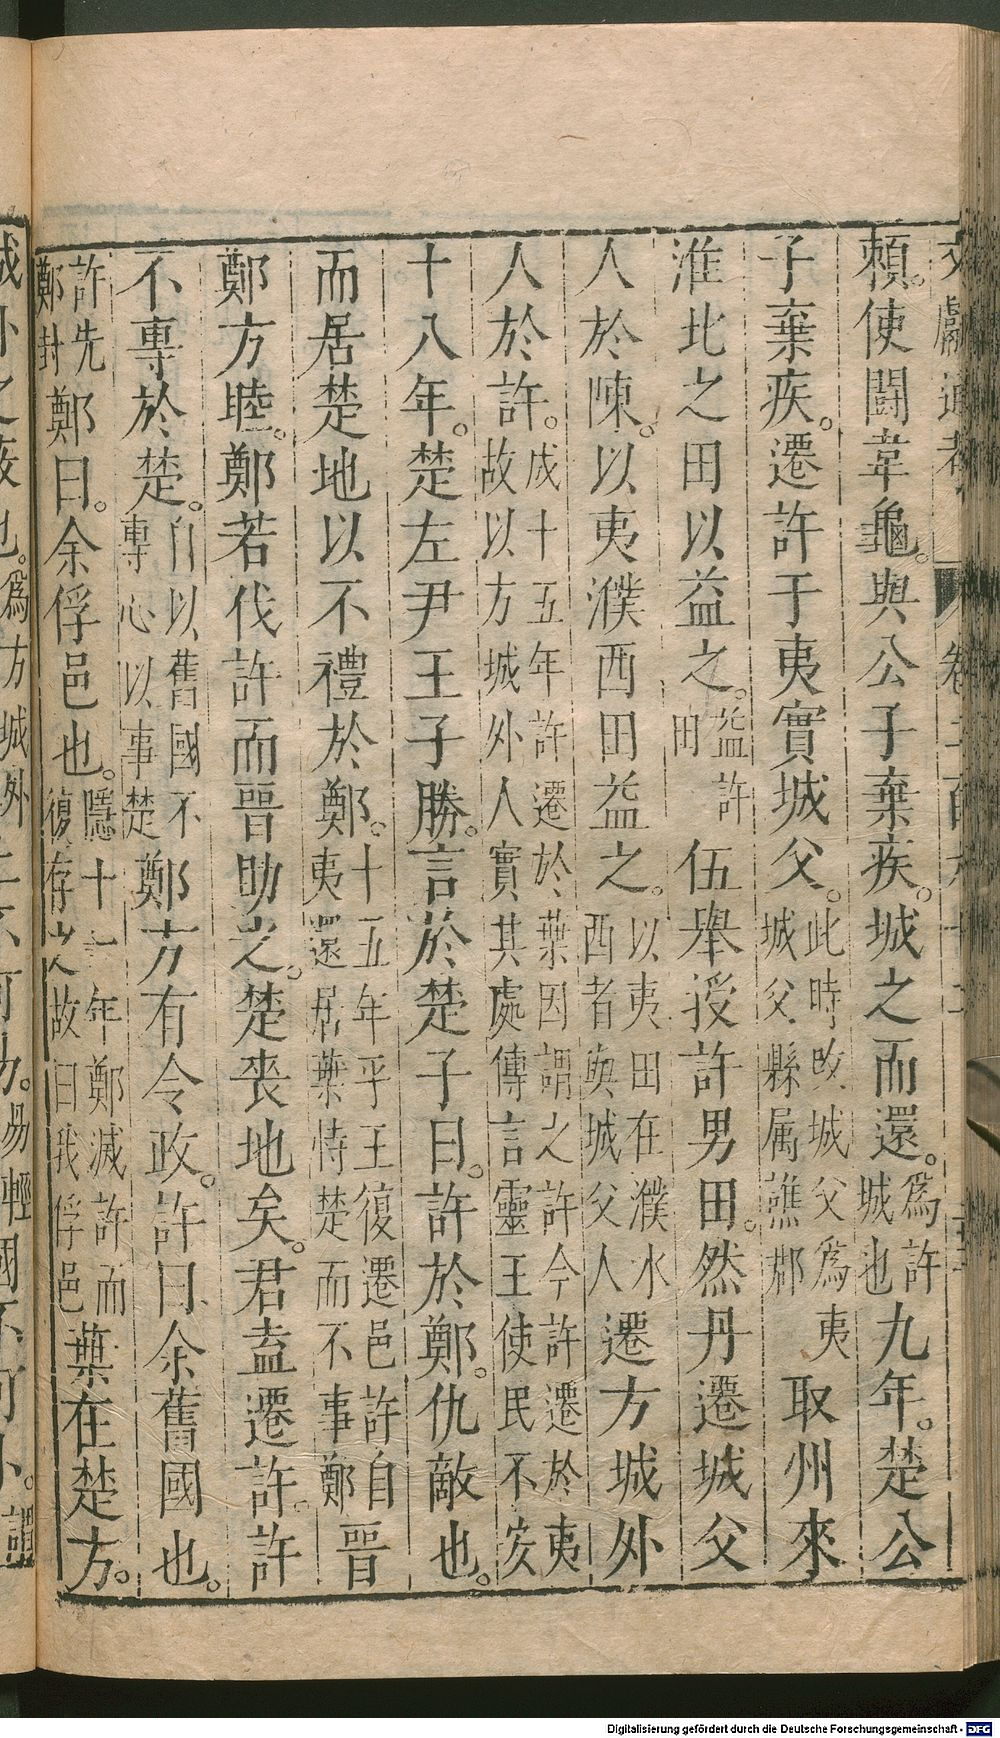 賴。使鬪韋龜。與公子棄疾。城之而還。爲許城也九年。楚公
子棄疾。遷許于夷實城父。此時改城父爲夷城父縣属譙郡取州來
淮北之田以益之。益許田伍舉授許男田。然丹遷城父
人於陳。以夷濮西田益之。以夷田在濮水西者與城父人遷方城外
人於許。成十五年許遷於葉因謂之許今許遷於夷故以方城外人實其處傳言靈王使民不安
十八年。楚左尹王子勝。言於楚子曰。許於鄭。仇敵也。
而居楚地以不禮於鄭。十五年平王復遷邑許自夷還居葉恃楚而不事鄭晉
鄭方睦。鄭若伐許而晉助之。楚喪地矣。君盍遷許。許
不專於楚。自以舊國不專心以事楚鄭方有令政。許曰余舊國也。
許先鄭封鄭曰。余俘邑也。隱十一年鄭滅許而復存之故曰我俘邑葉在楚方。
Digitalisierung gefördert durch die Deutsche Forschungsgemeinschaft - DFG